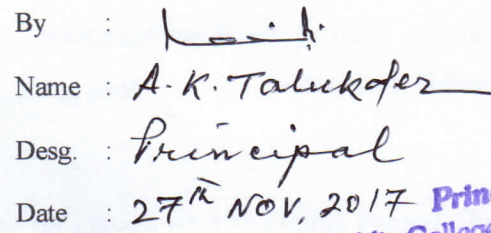 By :
Name : A. K. Talukder
Desg. : Principal
Date : 27th NOV, 2017
Prin
College